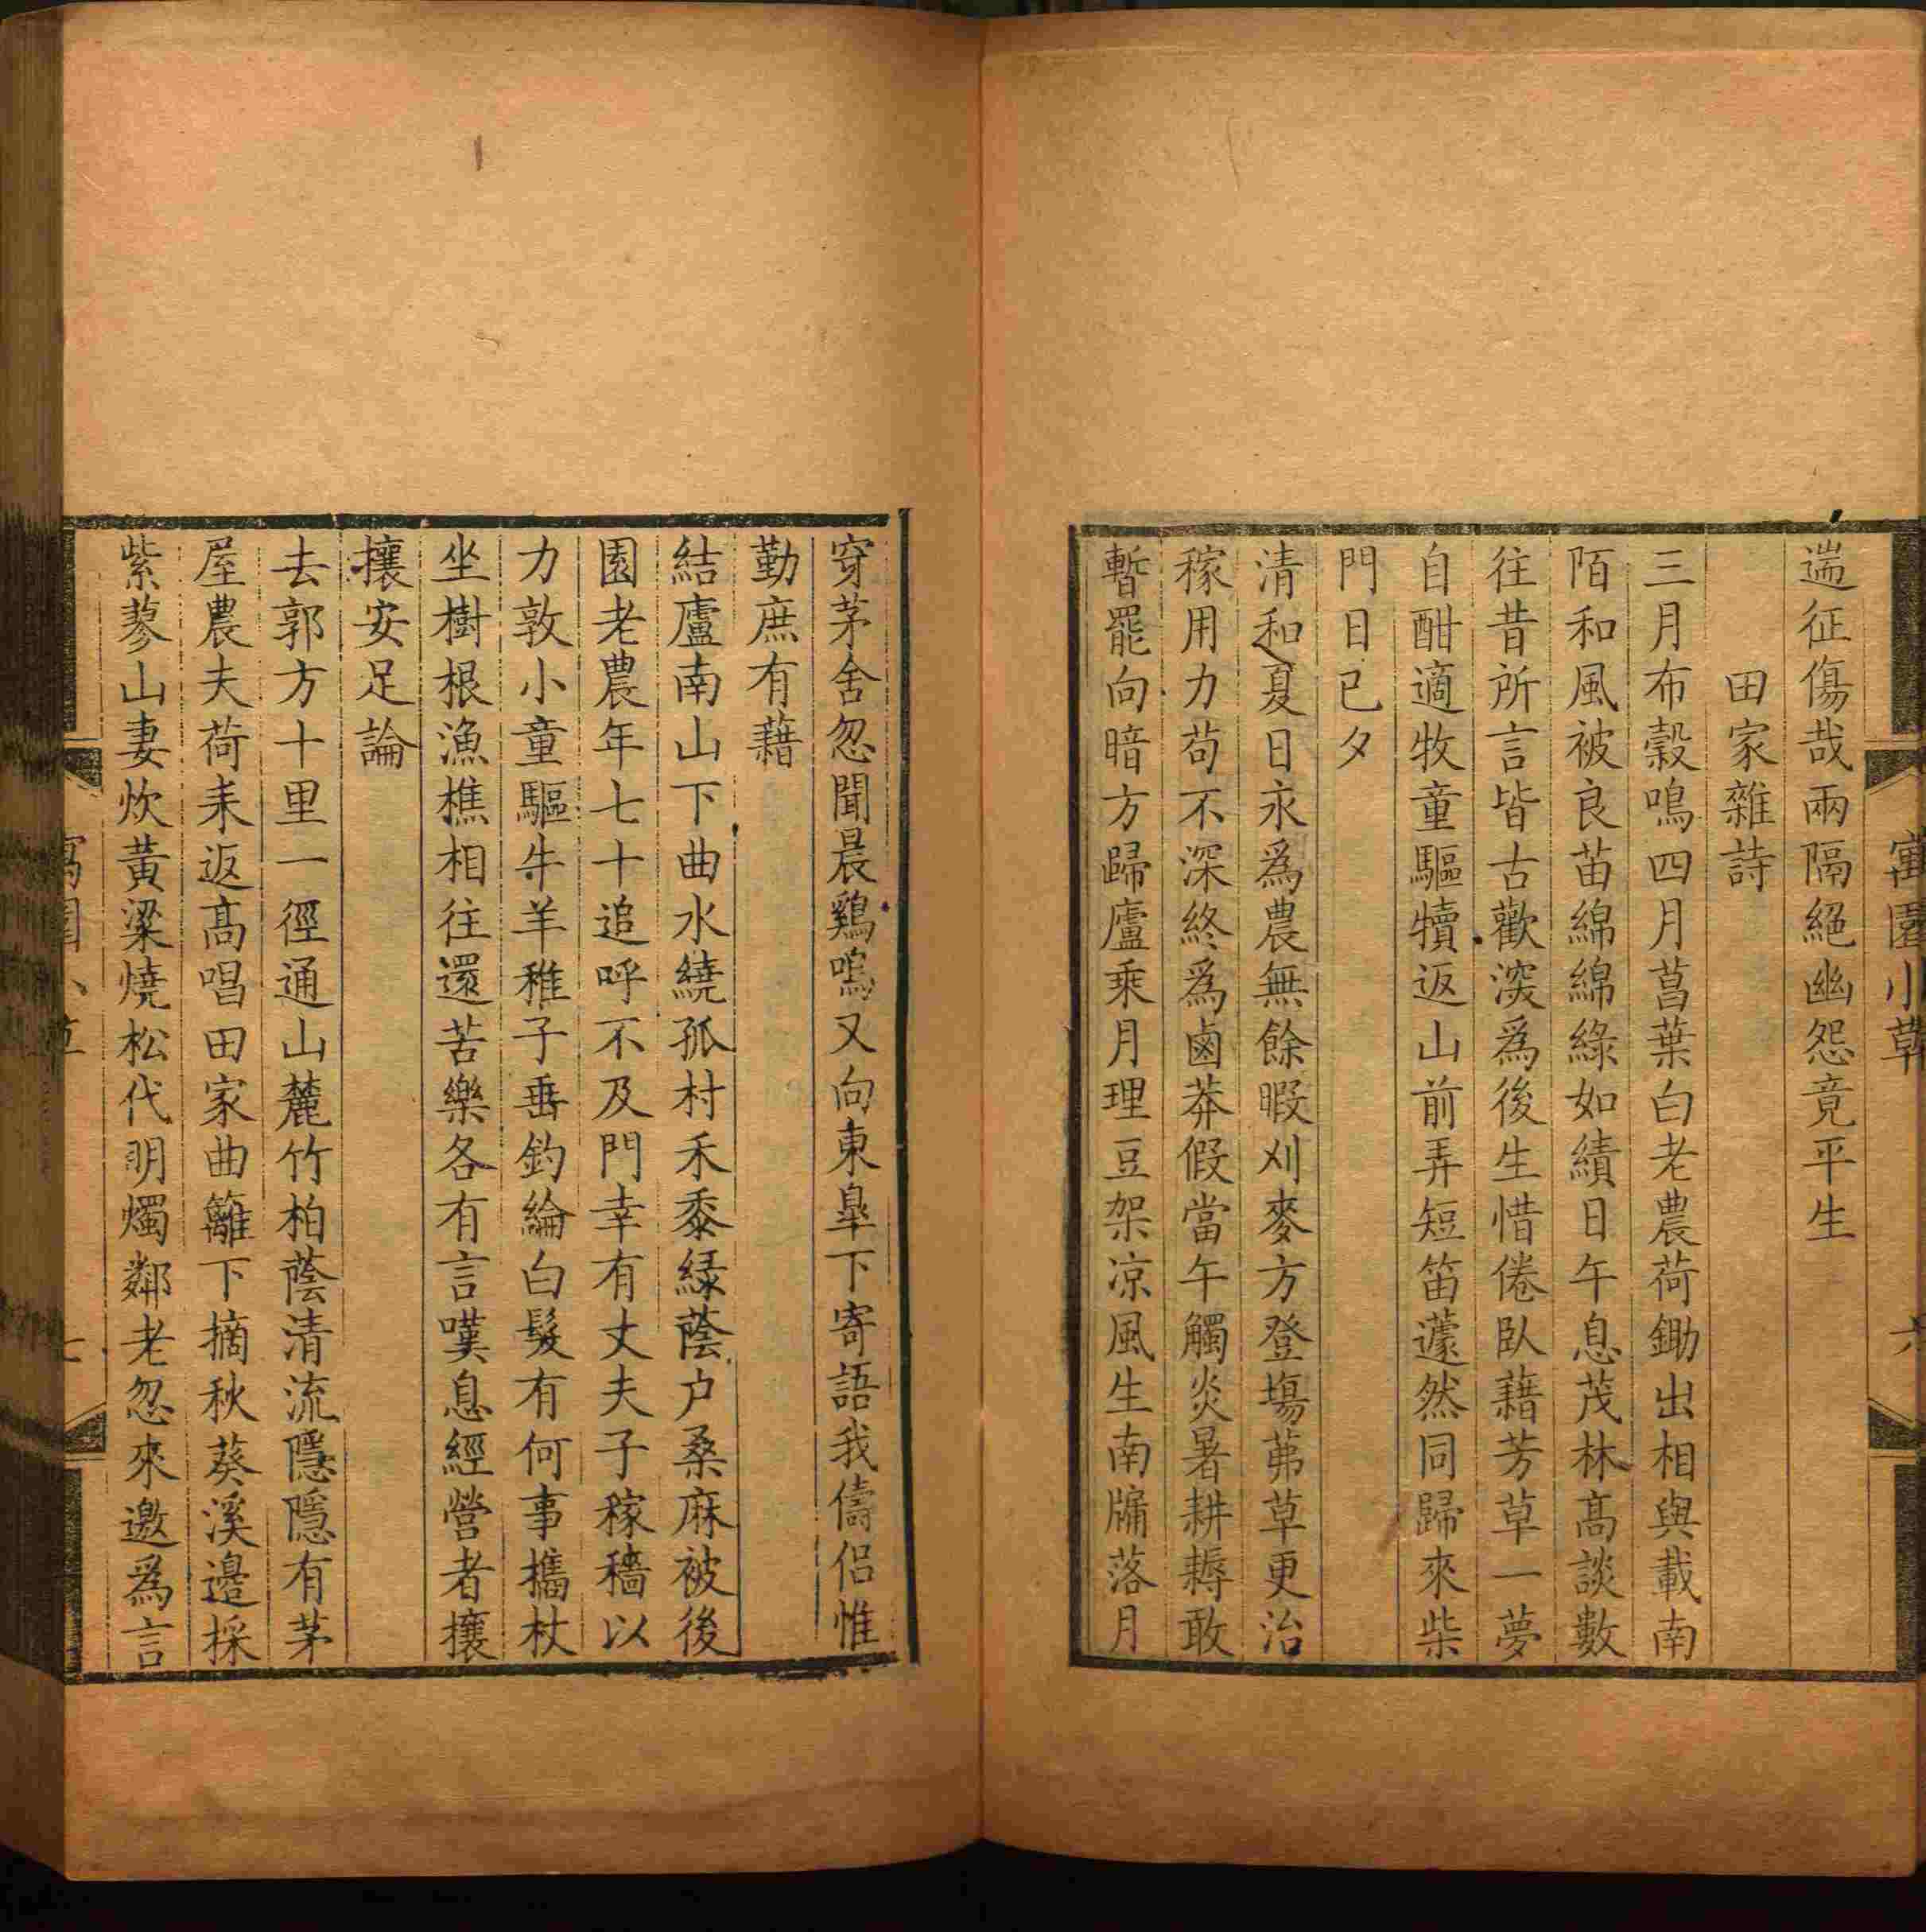 寓園小草
六
遄征傷哉兩隔絕幽怨竟平生
田家雜詩
三月布穀鳴四月菖葉白老農荷鋤出相與載南
陌和風被良苗綿綿綠如績日午息茂林高談數
往昔所言皆古歡深為後生惜倦臥藉芳草一夢
自酣適牧童驅犢返山前弄短笛蘧然同歸來柴
門日已夕
清和夏日永為農無餘暇刈麥方登塲茀草更治
稼用力苟不深終為鹵莽假當午觸炎暑耕耨敢
暫罷向暗方歸廬乘月理豆架凉風生南牖落月
穿茅舍忽聞晨鷄鳴又向東臯下寄語我儔侶惟
勤庶有藉
結廬南山下曲水繞孤村禾黍緑蔭户桑麻被後
園老農年七十追呼不及門幸有丈夫子稼穡以
力敦小童驅牛羊稚子垂釣綸白髮有何事攜杖
坐樹根漁樵相往還苦樂各有言嘆息經營者攘
攘安足論
去郭方十里一徑通山麓竹柏蔭清流隱隱有茅
屋農夫荷耒返高唱田家曲籬下摘秋葵溪邊採
紫蓼山妻炊黃粱燒松代明燭鄰老忽來邀為言